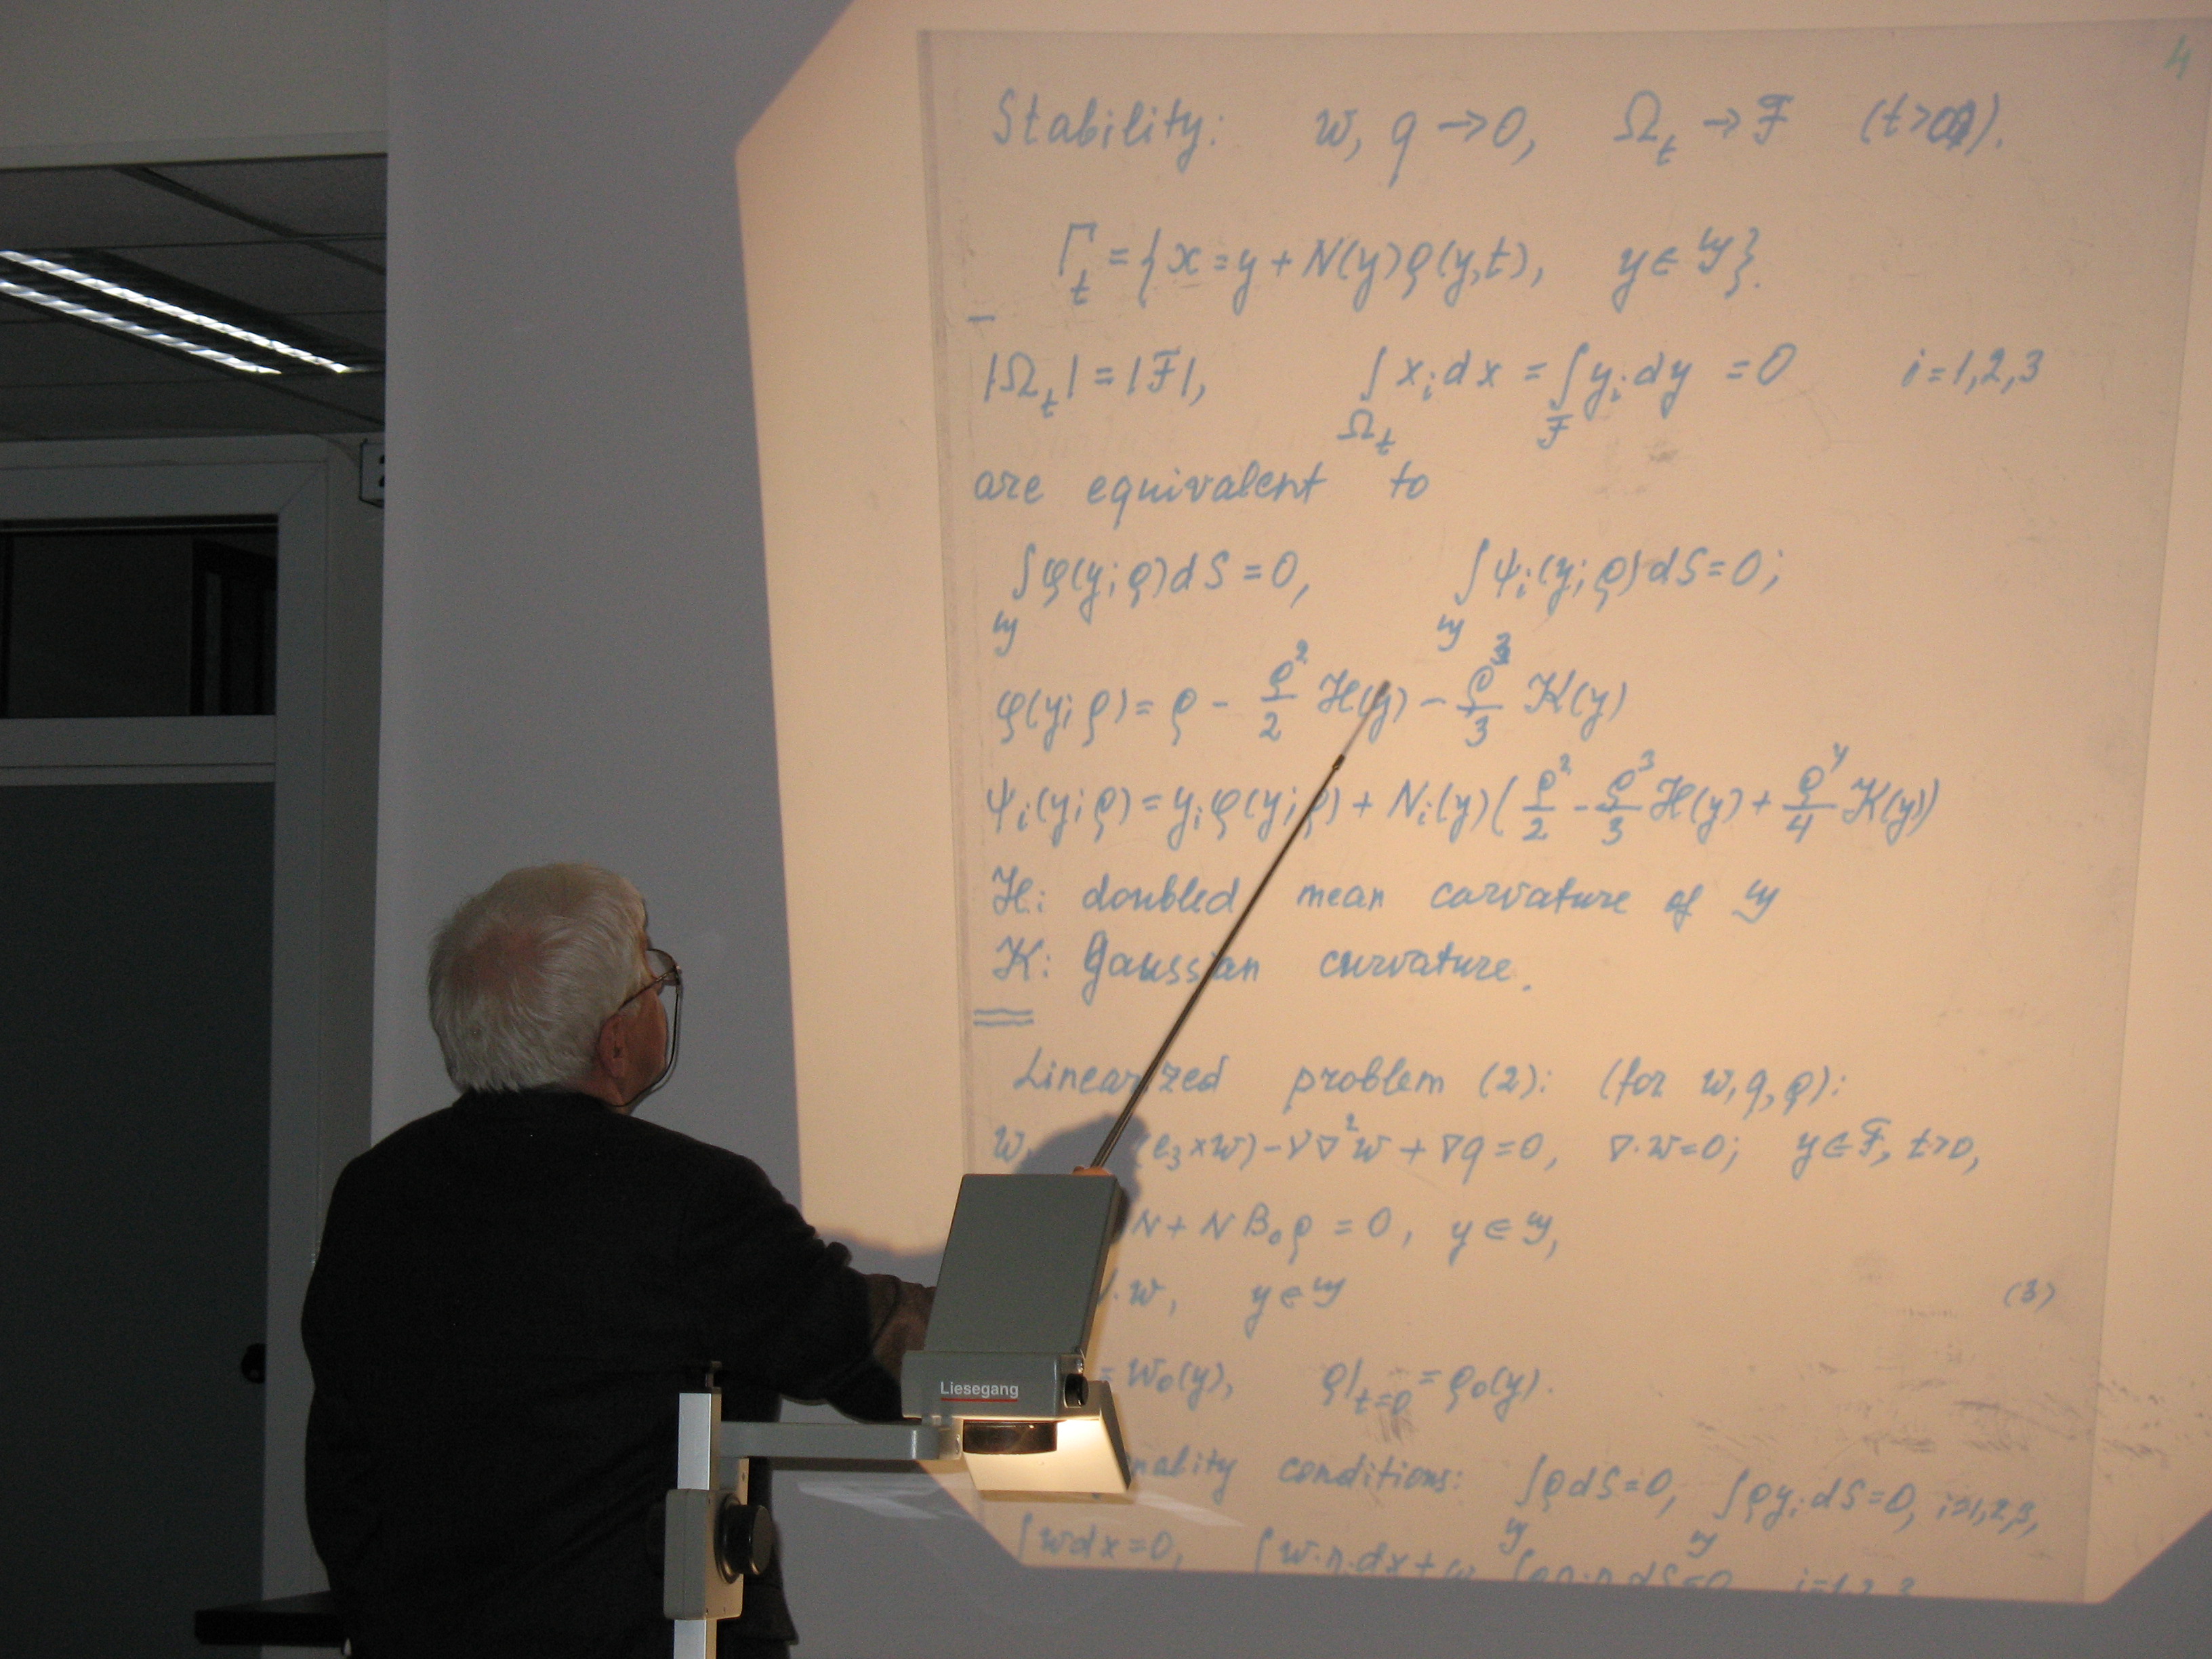 4
Stability: w, q → 0, Ω_t → ℱ (t > 0).
Γ_t = {x = y + N(y)ρ(y,t), y ∈ 𝒢}.
|Ω_t| = |ℱ|, ∫_{Ω_t} x_i dx = ∫_ℱ y_i dy = 0 i=1,2,3
are equivalent to
∫_𝒢 φ(y;ρ)dS = 0, ∫_𝒢 ψ_i(y;ρ)dS = 0;
φ(y;ρ) = ρ - ρ²/2 ℋ(y) - ρ³/3 𝒦(y)
ψ_i(y;ρ) = y_i φ(y;ρ) + N_i(y)(ρ²/2 - ρ³/3 ℋ(y) + ρ⁴/4 𝒦(y))
ℋ: doubled mean curvature of 𝒢
𝒦: Gaussian curvature.
Linearized problem (2): (for w, q, ρ):
w (e₃×w) - ν∇²w + ∇q = 0, ∇·w = 0; y ∈ ℱ, t>0,
N + N B₀ρ = 0, y ∈ 𝒢,
·w, y ∈ 𝒢 (3)
= w₀(y), ρ|_{t=0} = ρ₀(y).
nality conditions: ∫_𝒢 ρdS = 0, ∫_𝒢 ρy_i dS = 0, i=1,2,3,
∫wdx = 0, ∫w·η_i dx + ω ∫ρη_i·η dS = 0 i=1,2,3
Liesegang